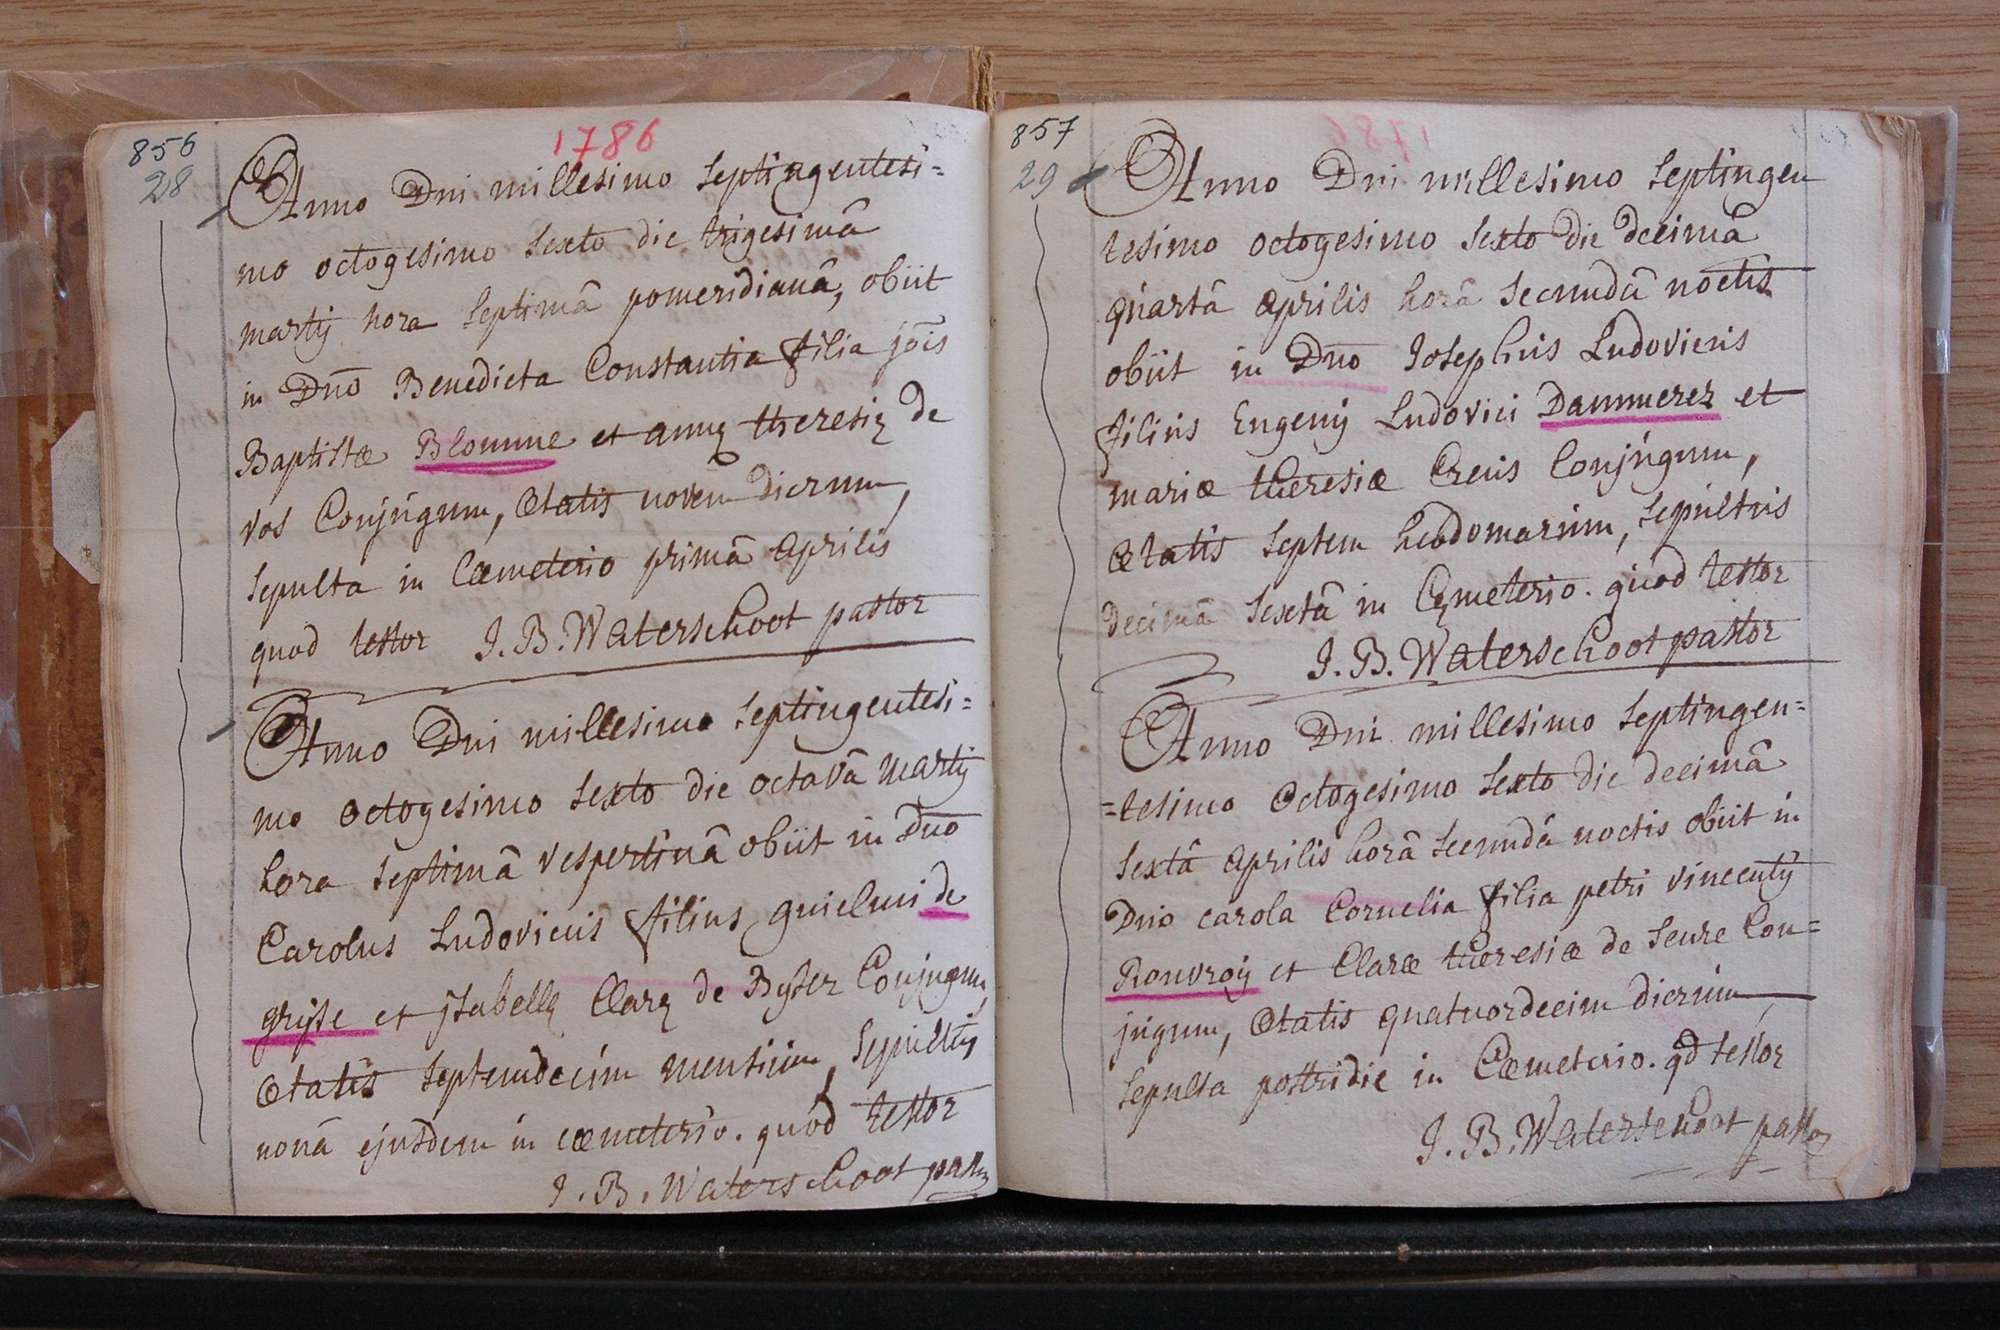 856
28
1786
Anno Dni millesimo septingentesi=
mo octogesimo sexto die trigesimâ
martij hora septimâ pomeridianâ, obiit
in Dnō Benedicta Constantia filia jōis
Baptistæ Blomme et annę theresię de
vos Conjúgum, ætatis novem dierum,
sepulta in Cæmeterio primâ aprilis
quod testor J. B. Waterschoot pastor
Anno Dni millesimo septingentesi=
mo octogesimo sexto die octavâ martij
hora septimâ vespertinâ obiit in Dnō
Carolus Ludovicus filius guielmi de
gryse et ysabellę Clarę de Byser Conjugum,
ætatis septemdecim mensium, sepultus
nonâ ejusdem in cæmeterio. quòd testor
J. B. Waterschoot pastor
857
29
Anno Dni millesimo septingen
tesimo octogesimo sexto die decimâ
quartâ aprilis horâ secundâ noctis
obiit in Dnō Josephus Ludovicus
filius Eugenij Ludovici Dammerez et
mariæ theresiæ Creus Conjúgum,
ætatis septem hebdomarum, sepultus
decimâ sextâ in Cęmeterio. quod testor
J. B. Waterschoot pastor
Anno Dni millesimo septingen=
=tesimo octogesimo sexto die decimâ
sextâ aprilis horâ secundâ noctis obiit in
Dno carola Cornelia filia petri vincentij
Rouvroij et Claræ theresiæ de seure Con=
jugum, ætatis quatuordecim dierum,
sepulta postridie in Cæmeterio. qd testor
J. B. Waterschoot pastor